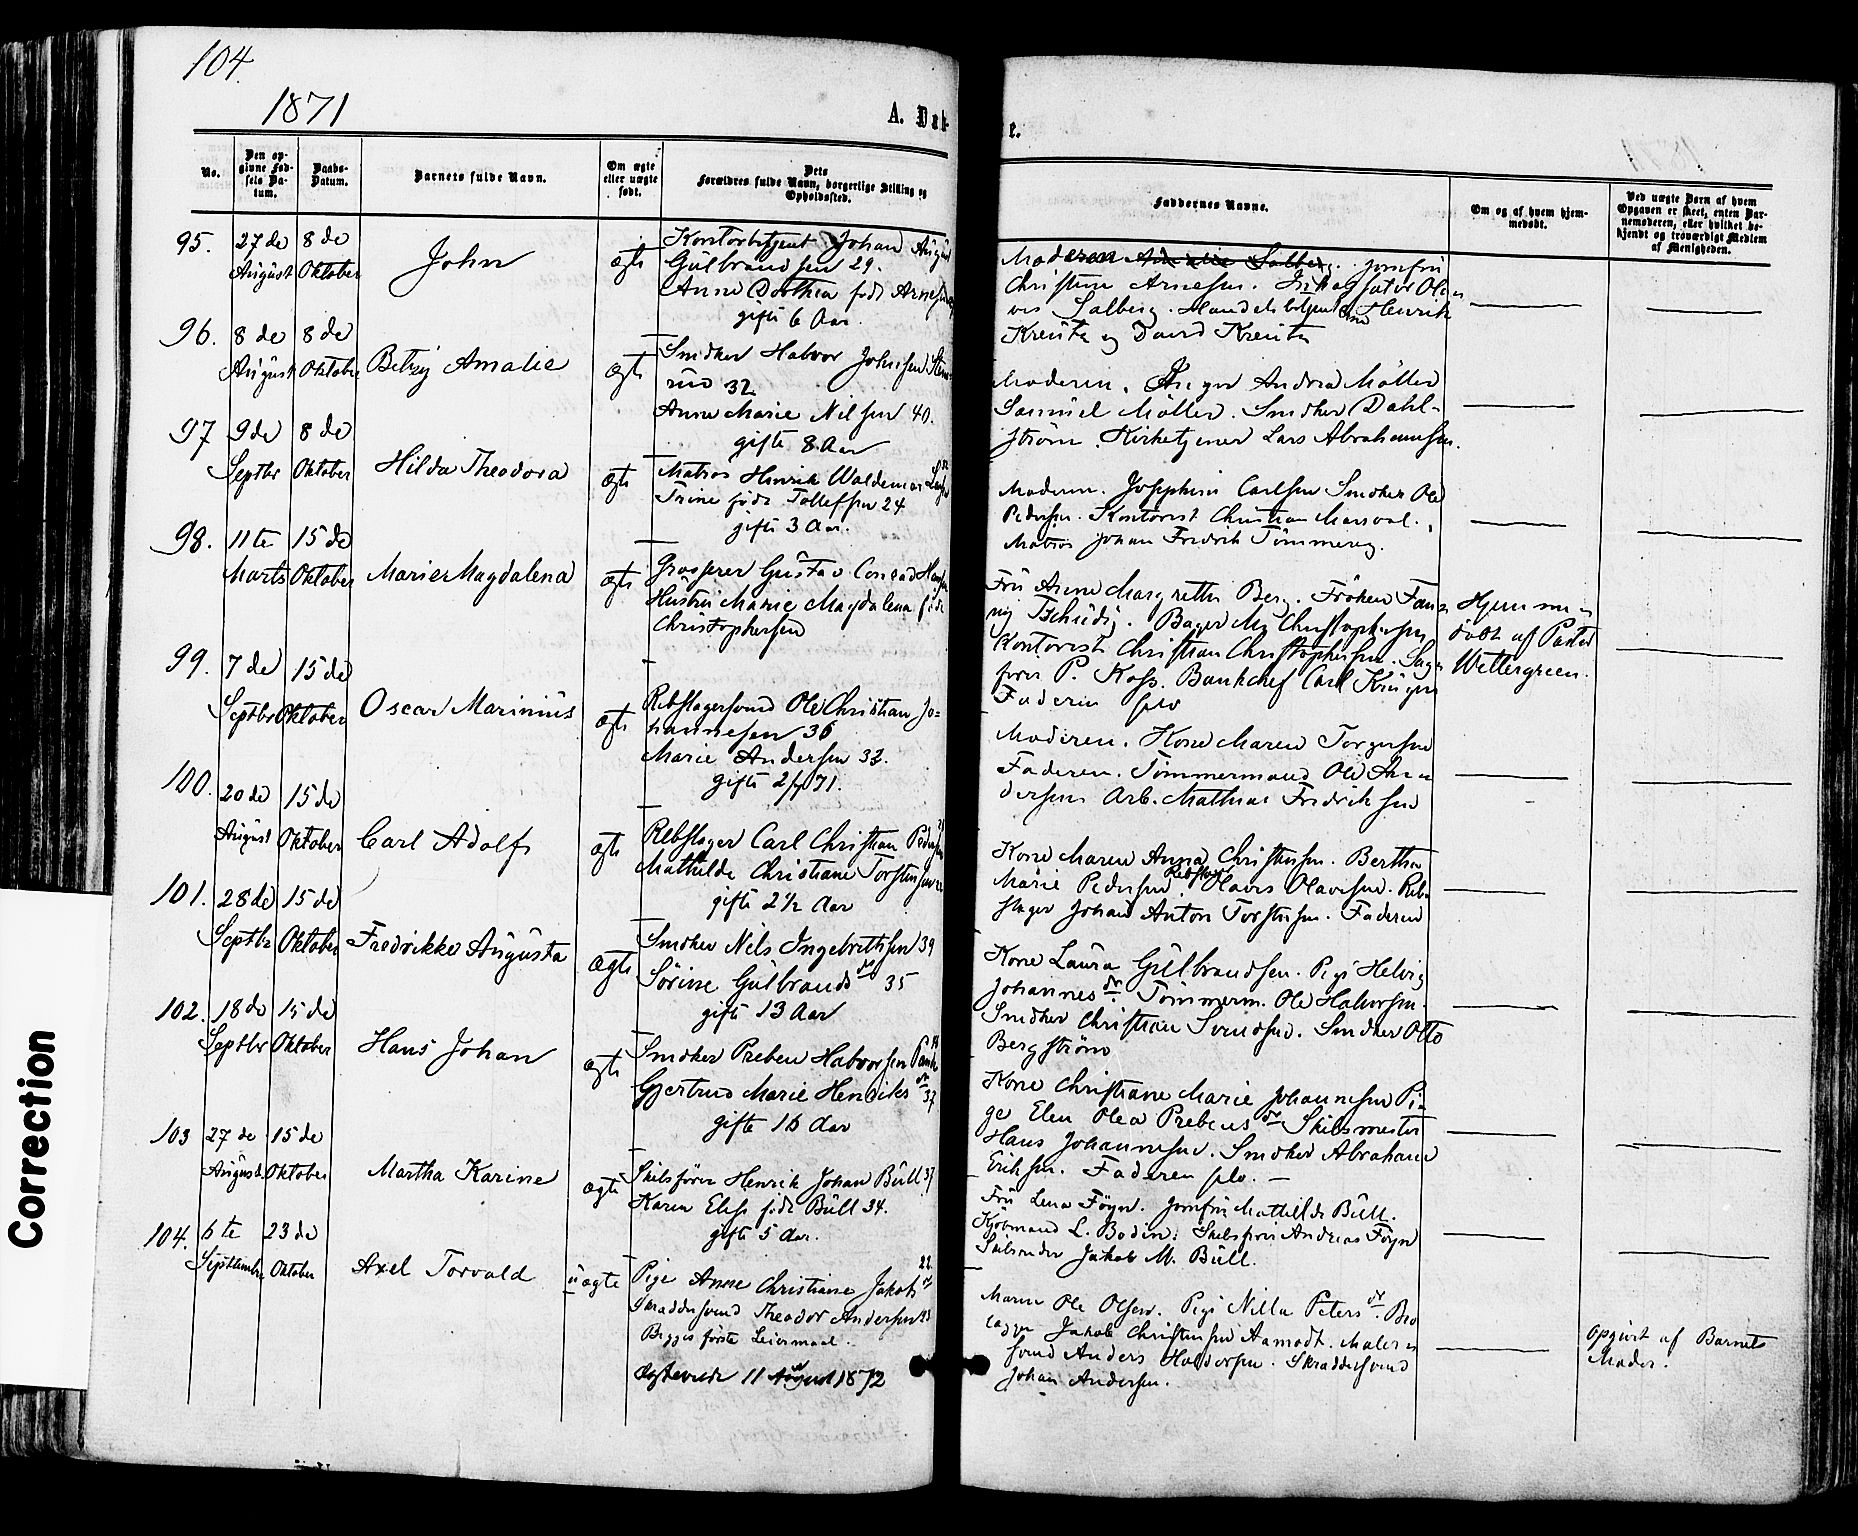 104.
1871
A. Døb-
te.
No.
Den op-
givne Fød-
sels Da-
tum.
Daabs-
Datum.
Barnets fulde Navn.
Om ægte
eller uægte
født.
Dets
Forældres fulde Navn, borgerlige Stilling og
Opholdssted.
Faddernes Navne.
Om og af hvem hjem-
medøbt.
Ved uægte Børn af hvem
Opgaven er skeet, enten Bar-
nemoderen, eller hvilket be-
kjendt og troværdigt Medlem
af Menigheden.
95. 27de August 8de Oktober
John
ægte
Kontorbetjent Johan August
Gulbrandsen 29.
Anne Dorthea født Arnesen
gifte 6 Aar.
Moderen Solberg. Jomfru
Christine Arnesen. Ole
Solberg. Handelsbetjent Henrik
Kreutz og David Kreutz
96. 8de August 8de Oktober
Betzy Amalie
ægte
Smdker Halvor Johnsen
rud 32
Anne Marie Nilsen 40.
gifte 8 Aar
Moderen. Andrea Möller
Samuel Möller. Smdker Dahl-
ström. Kirketjener Lars Abrahamsen.
97 9de Septbr 8de Oktober
Hilda Theodora
ægte
Matros Hinrik Waldemar
Trine född Tollefsen 24
gifte 3 Aar.
Moderen. Josephine Carlsen Smdker Ole
Pedersen. Kontorist Christian
Matros Johan Fredrik Tömmerug.
98. 11te Marts 15de Oktober
Marie Magdalena
ægte
Grosserer Gustav Conrad Hansen
Hustru Marie Magdalena född
Christophersen
Fru Anne Margrethe Berg. Fröken Fan-
ny Tschudy. Bager M. Christophersen
Kontorist Christian Christophersen. Sag-
förer P. Koss. Bankchef Carl Krüger
Faderen selv
Hjemme-
döbt af Pastor
Wettergreen.
99. 7de Septbr 15de Oktober
Oscar Marinius
ægte
Rebslagersvend Ole Christian Jo-
hannesen 36
Marie Andersen 32.
gifte 2/7 71.
Moderen. Kone Maren Torgersen
Faderen. Tömmermand Ole An-
dersen Arb. Mathias Fredriksen
100. 20de August 15de Oktober
Carl Adolf
ægte
Rebslager Carl Christian Pedersen
Mathilde Christiane Torstensen
gifte 2½ Aar
Kone Maren Anna Christensen. Berthe
Marie Pedersen. Rebslager Olaves Olavesen. Reb-
slager Johan Anton Torstensen. Faderen
101. 28de Septbr 15de Oktober
Fredrikke Augusta
ægte
Smdker Nils Ingebrethsen 39
Sörine Gulbrandsdr 35
gifte 13 Aar
Kone Laura Gulbrandsen. Pige Helvig
Johannesdr. Tömmerm. Ole Halvorsen.
Smdker Christian Svendsen. Smdker Otto
Bergström
102. 18de Septbr 15de Oktober
Hans Johan
ægte
Smdker Preben Halvorsen
Gjertrud Marie Henriksdr 37
gifte 16 Aar
Kone Christiane Marie Johannesen Pi-
ge Elen Olea Prebensdr Skibsmester
Hans Johannesen. Smdker Abraham
Eriksen. Faderen selv. —
103 27de August 15de Oktober
Martha Karine
ægte
Skibsförer Henrik Johan Büll 37
Karen Elise född Büll 34.
gifte 5 Aar.
Fru Lena Föyn. Jomfru Mathilde Büll.
Kjöbmand L. Bodin. Skibsförer Andreas Föyn
Jakob M. Büll.
104. 6te September 23de Oktober
Axel Torvald
uægte
Pige Anne Christiane Jakobsdr 22
Skræddersvend Theodor Andersen 23
Begges förste Leiermaal.
Ægteviede 11 August 1872
Maren Ole Olsen. Pige Nilla Petersdr. Bro-
lægger Jakob Christensen Aamodt. Maler-
svend Anders Haldorsen. Skræddersvend
Johan Andersen.
Opgivet af Barnets
Moder.
Correction